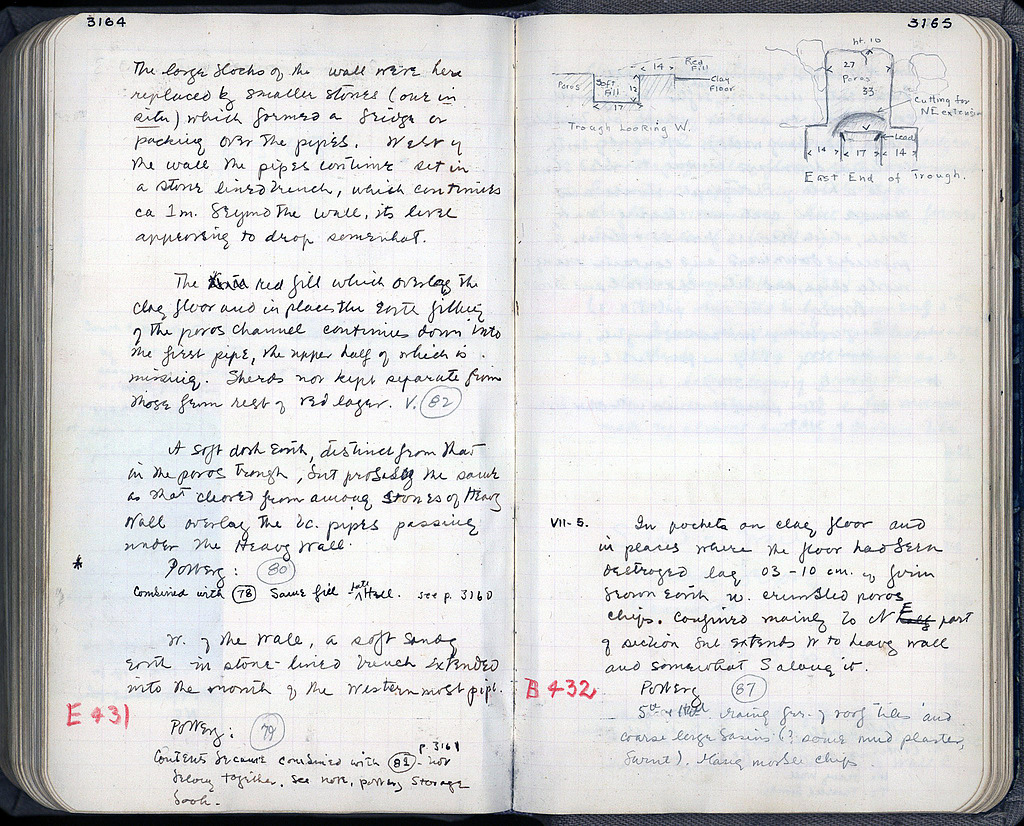 3164
The large blocks of the wall were here
replaced by smaller stones (one in
situ) which formed a bridge or
packing over the pipes. West of
the wall the pipes continue set in
a stone lined trench, which continues
ca 1m. beyond the wall, its level
appearing to drop somewhat.
The red fill which overlay the
clay floor and in places the earth filling
of the poros channel continues down into
the first pipe, the upper half of which is
missing. Sherds not kept separate from
those from rest of red layer. V. 82
A soft dark earth, distinct from that
in the poros trough, but probably the same
as that cleared from among stones of Heavy
Wall overlay the t.c. pipes passing
under the Heavy Wall.
* Pottery: 80
Combined with 78 Same fill late Hell. see p. 3160
W. of the wall, a soft sandy
earth in stone-lined trench extended
into the mouth of the westernmost pipe.
E 431
Pottery: 79
p. 3161
Contents became combined with 81 - not
belong together. See note, pottery storage
book.
3165
14
Red Fill
Poros
Soft Fill
12
Clay Floor
17
Trough Looking W.
ht. 10
27
Poros
33
Cutting for
NE extension
Lead
14 17 14
East End of Trough.
VII-5. In pockets on clay floor and
in places where the floor had been
destroyed lay 03-10 cm. of firm
brown earth w. crumbled poros
chips. Confined mainly to NE part
of section but extends W to heavy wall
and somewhat S along it.
B 432
Pottery 87
5th + frg. of roof tiles and
coarse large basins (? some mud plaster,
burnt). Many marble chips.